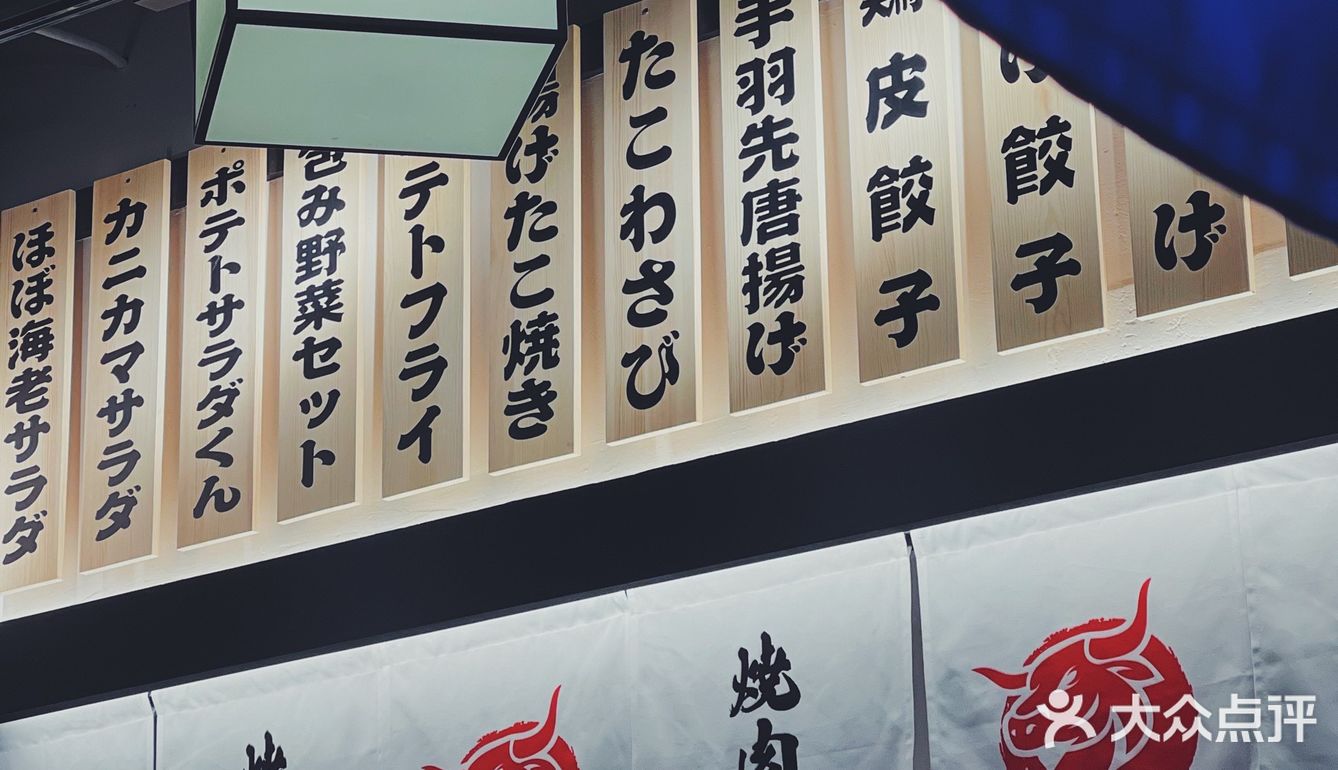 ほぼ海老サラダ
カニカマサラダ
ポテトサラダくん
包み野菜セット
テトフライ
揚げたこ焼き
たこわさび
手羽先唐揚げ
鶏皮餃子
げ餃子
げ
焼
焼肉
大众点评